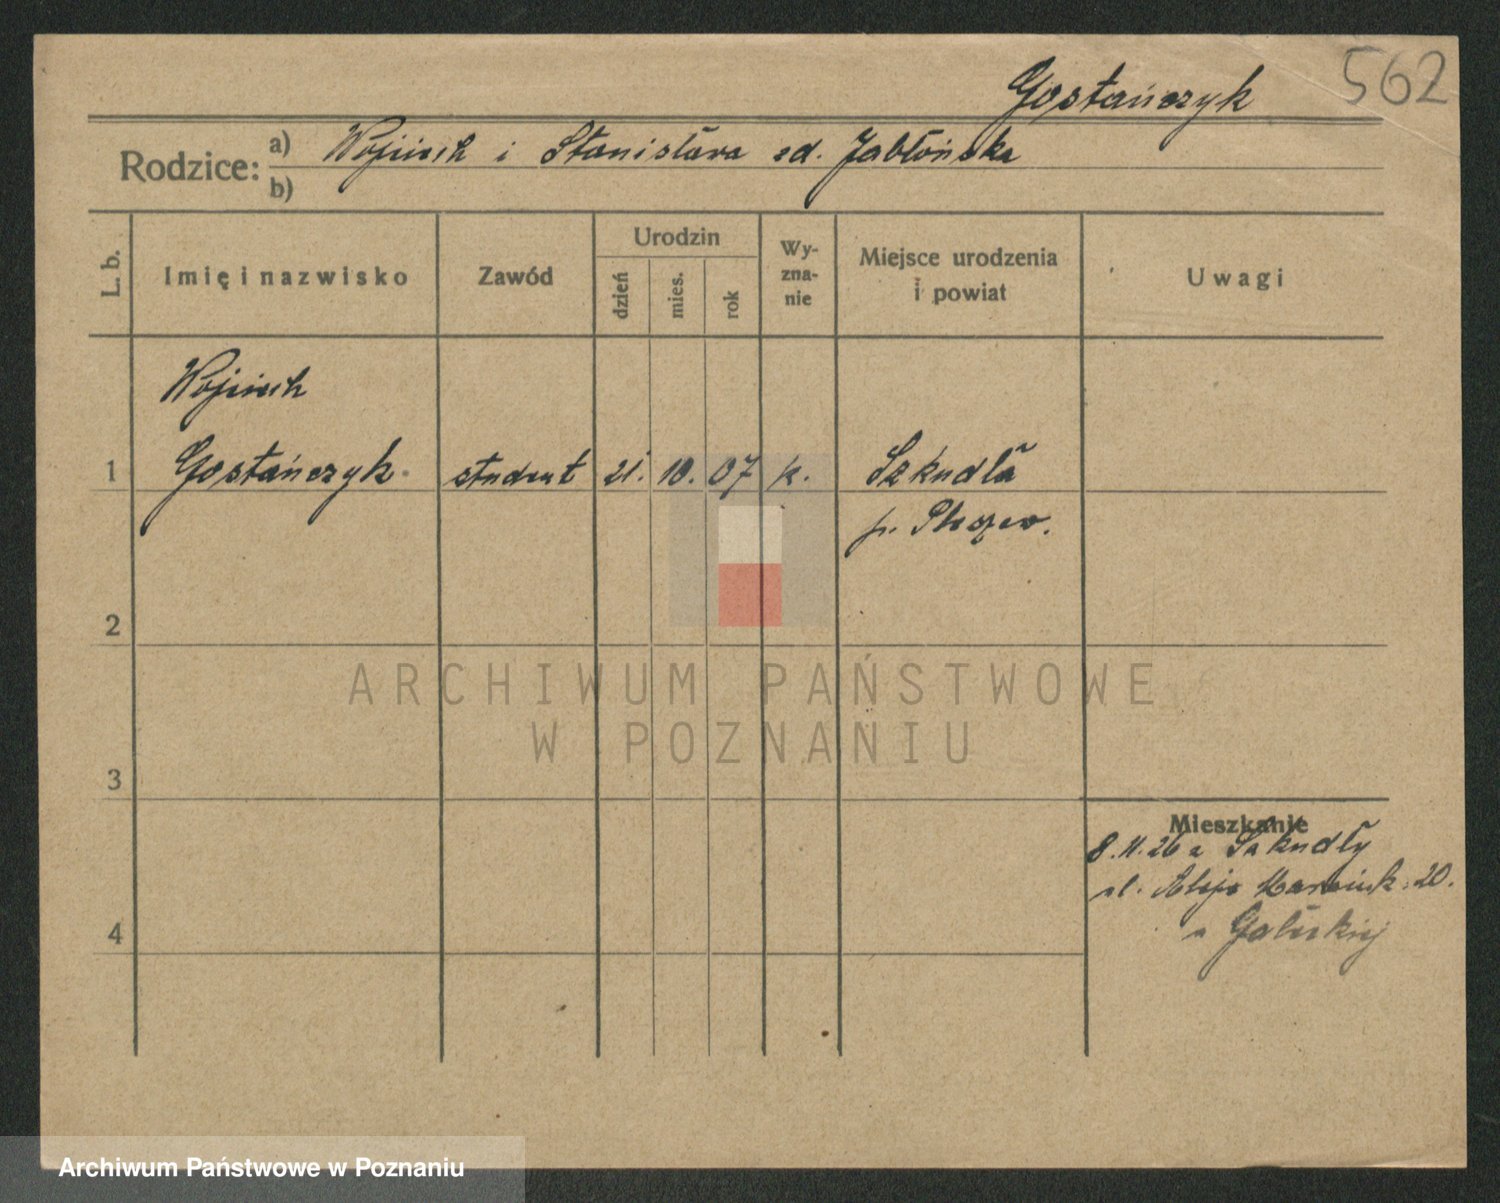 562
Gostańczyk
Rodzice:
a) Wojciech i Stanisława zd. Jabłońska
b)
L. b.
Imię i nazwisko
Zawód
Urodzin
dzień
mies.
rok
Wy-
zna-
nie
Miejsce urodzenia
i powiat
Uwagi
Wojciech
1 Gostańczyk student 21. 10. 07 k. Szkudła
p. Pleszew.
2
3
4
Mieszkanie
8.11.26 z Szkudły
Aleje Marcink. 20.
ARCHIWUM PAŃSTWOWE
W POZNANIU
Archiwum Państwowe w Poznaniu